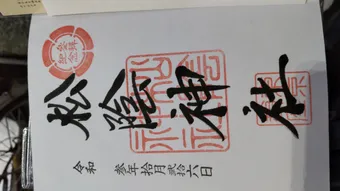 松陰神社
令和 参年拾月弐拾六日